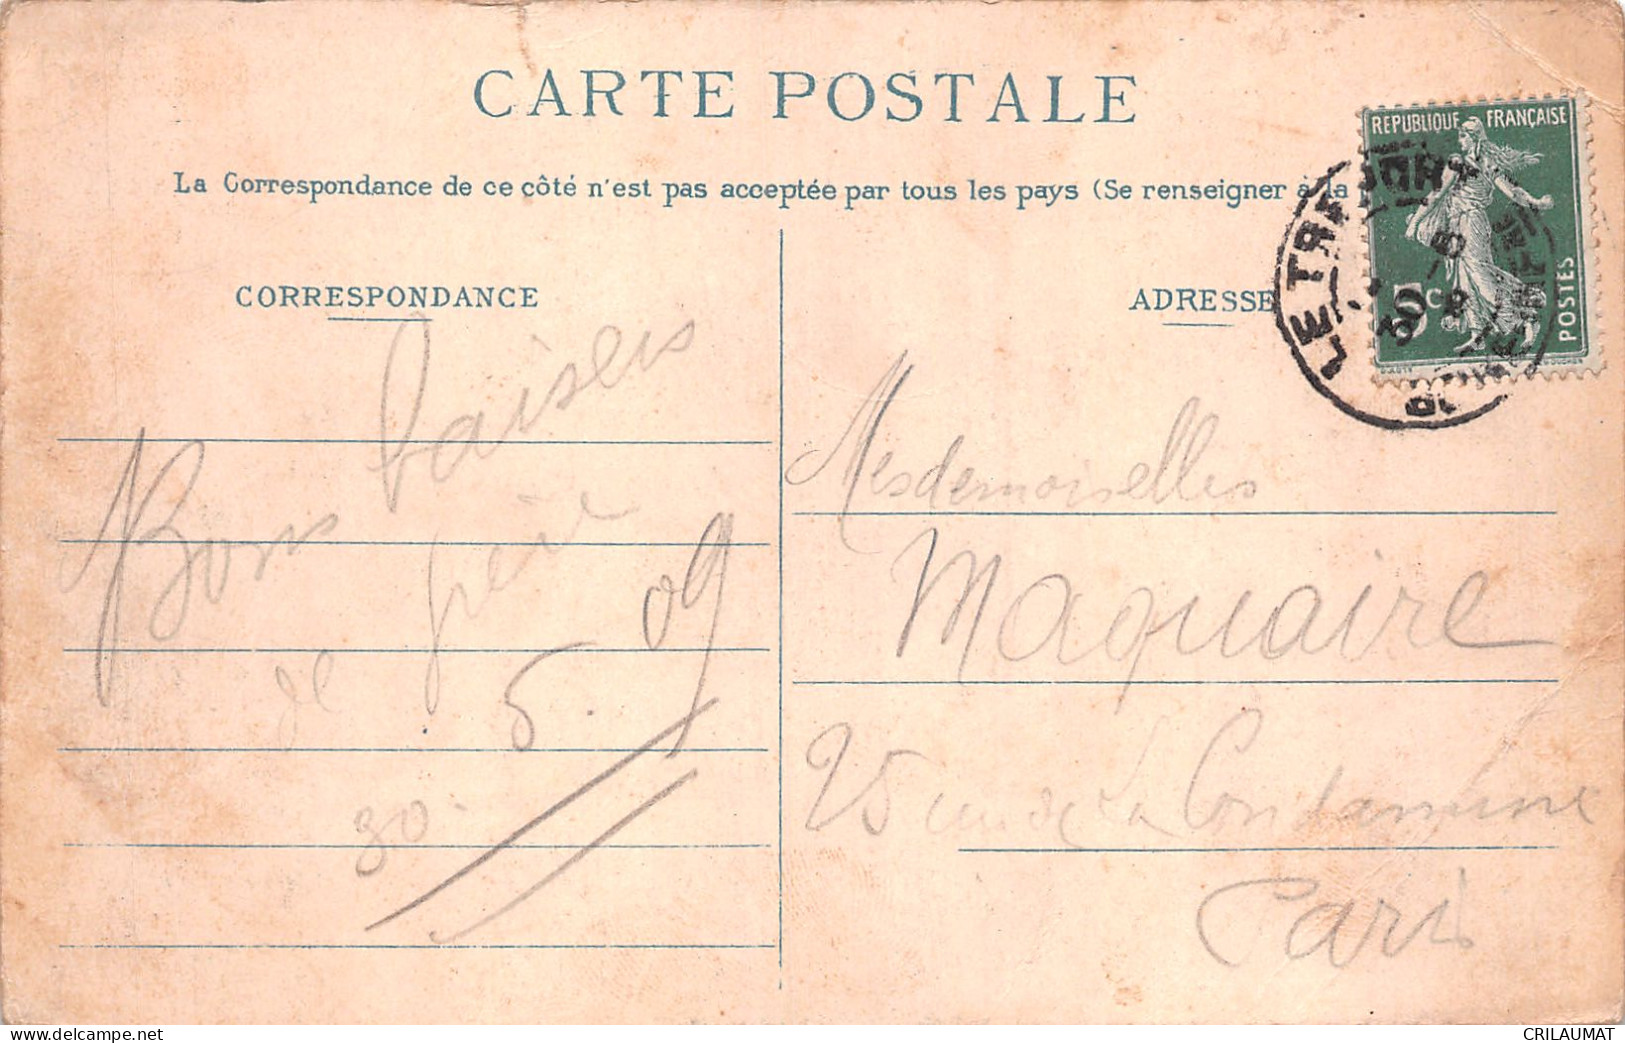 CARTE POSTALE
La Correspondance de ce côté n'est pas acceptée par tous les pays (Se renseigner à la
CORRESPONDANCE
Bons baisers
de frère
30. 5. 09
ADRESSE
REPUBLIQUE FRANÇAISE
5c
POSTES
LE TREPORT
30 - 5
Mesdemoiselles
Maquaire
25 rue de La Condamine
Paris
CRILAUMAT